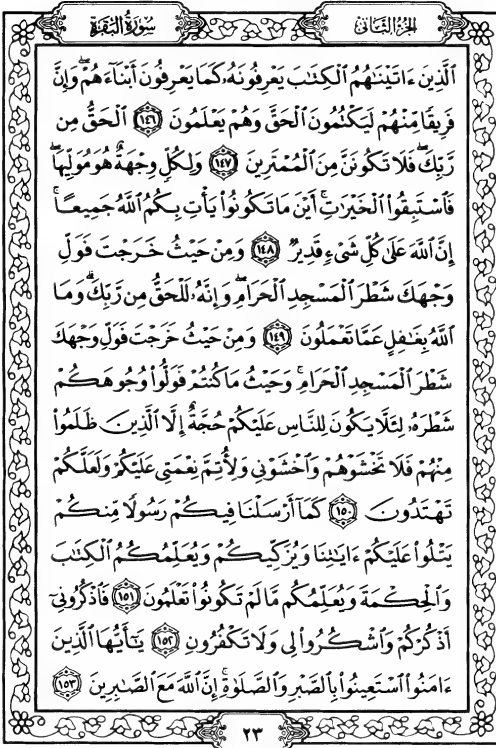 سورة البقرة
الجزء الثاني
ٱلَّذِينَ ءَاتَيۡنَٰهُمُ ٱلۡكِتَٰبَ يَعۡرِفُونَهُۥ كَمَا يَعۡرِفُونَ أَبۡنَآءَهُمۡۖ وَإِنَّ
فَرِيقٗا مِّنۡهُمۡ لَيَكۡتُمُونَ ٱلۡحَقَّ وَهُمۡ يَعۡلَمُونَ ١٤٦ ٱلۡحَقُّ مِن
رَّبِّكَ فَلَا تَكُونَنَّ مِنَ ٱلۡمُمۡتَرِينَ ١٤٧ وَلِكُلّٖ وِجۡهَةٌ هُوَ مُوَلِّيهَاۖ
فَٱسۡتَبِقُواْ ٱلۡخَيۡرَٰتِۚ أَيۡنَ مَا تَكُونُواْ يَأۡتِ بِكُمُ ٱللَّهُ جَمِيعًاۚ
إِنَّ ٱللَّهَ عَلَىٰ كُلِّ شَيۡءٖ قَدِيرٞ ١٤٨ وَمِنۡ حَيۡثُ خَرَجۡتَ فَوَلِّ
وَجۡهَكَ شَطۡرَ ٱلۡمَسۡجِدِ ٱلۡحَرَامِۖ وَإِنَّهُۥ لَلۡحَقُّ مِن رَّبِّكَۗ وَمَا
ٱللَّهُ بِغَٰفِلٍ عَمَّا تَعۡمَلُونَ ١٤٩ وَمِنۡ حَيۡثُ خَرَجۡتَ فَوَلِّ وَجۡهَكَ
شَطۡرَ ٱلۡمَسۡجِدِ ٱلۡحَرَامِۚ وَحَيۡثُ مَا كُنتُمۡ فَوَلُّواْ وُجُوهَكُمۡ
شَطۡرَهُۥ لِئَلَّا يَكُونَ لِلنَّاسِ عَلَيۡكُمۡ حُجَّةٌ إِلَّا ٱلَّذِينَ ظَلَمُواْ
مِنۡهُمۡ فَلَا تَخۡشَوۡهُمۡ وَٱخۡشَوۡنِي وَلِأُتِمَّ نِعۡمَتِي عَلَيۡكُمۡ وَلَعَلَّكُمۡ
تَهۡتَدُونَ ١٥٠ كَمَآ أَرۡسَلۡنَا فِيكُمۡ رَسُولٗا مِّنكُمۡ
يَتۡلُواْ عَلَيۡكُمۡ ءَايَٰتِنَا وَيُزَكِّيكُمۡ وَيُعَلِّمُكُمُ ٱلۡكِتَٰبَ
وَٱلۡحِكۡمَةَ وَيُعَلِّمُكُم مَّا لَمۡ تَكُونُواْ تَعۡلَمُونَ ١٥١ فَٱذۡكُرُونِيٓ
أَذۡكُرۡكُمۡ وَٱشۡكُرُواْ لِي وَلَا تَكۡفُرُونِ ١٥٢ يَٰٓأَيُّهَا ٱلَّذِينَ
ءَامَنُواْ ٱسۡتَعِينُواْ بِٱلصَّبۡرِ وَٱلصَّلَوٰةِۚ إِنَّ ٱللَّهَ مَعَ ٱلصَّٰبِرِينَ ١٥٣
٢٣